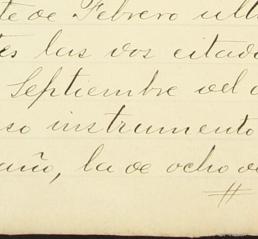 te de Febrero ult
tes las dos citad
Septiembre del a
so instrumento
año, la de ocho de